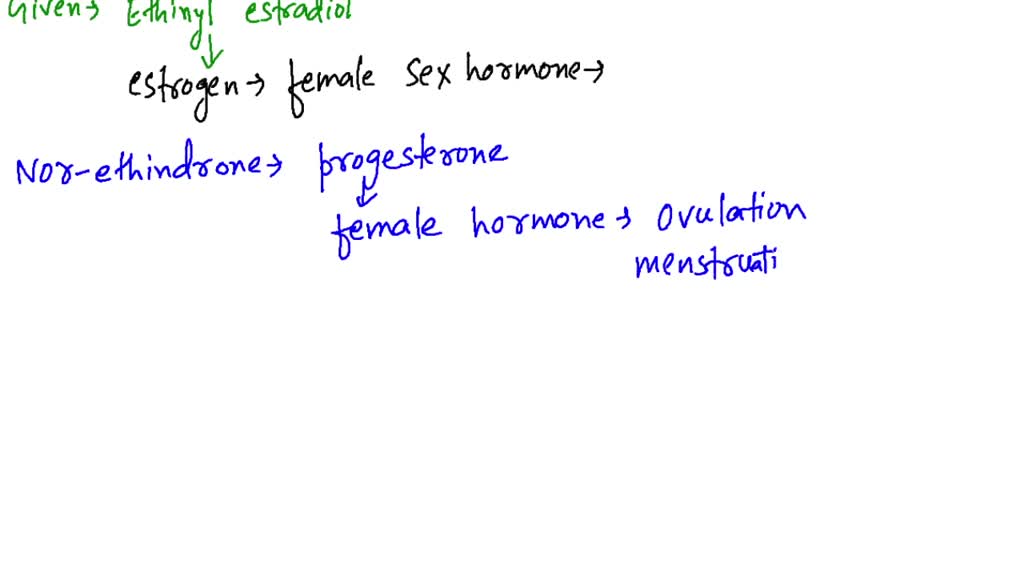 Given → Ethinyl estradiol
↓
estrogen → female sex hormone →
Nor-ethindrone → progesterone
↓
female hormone → Ovulation
menstruati